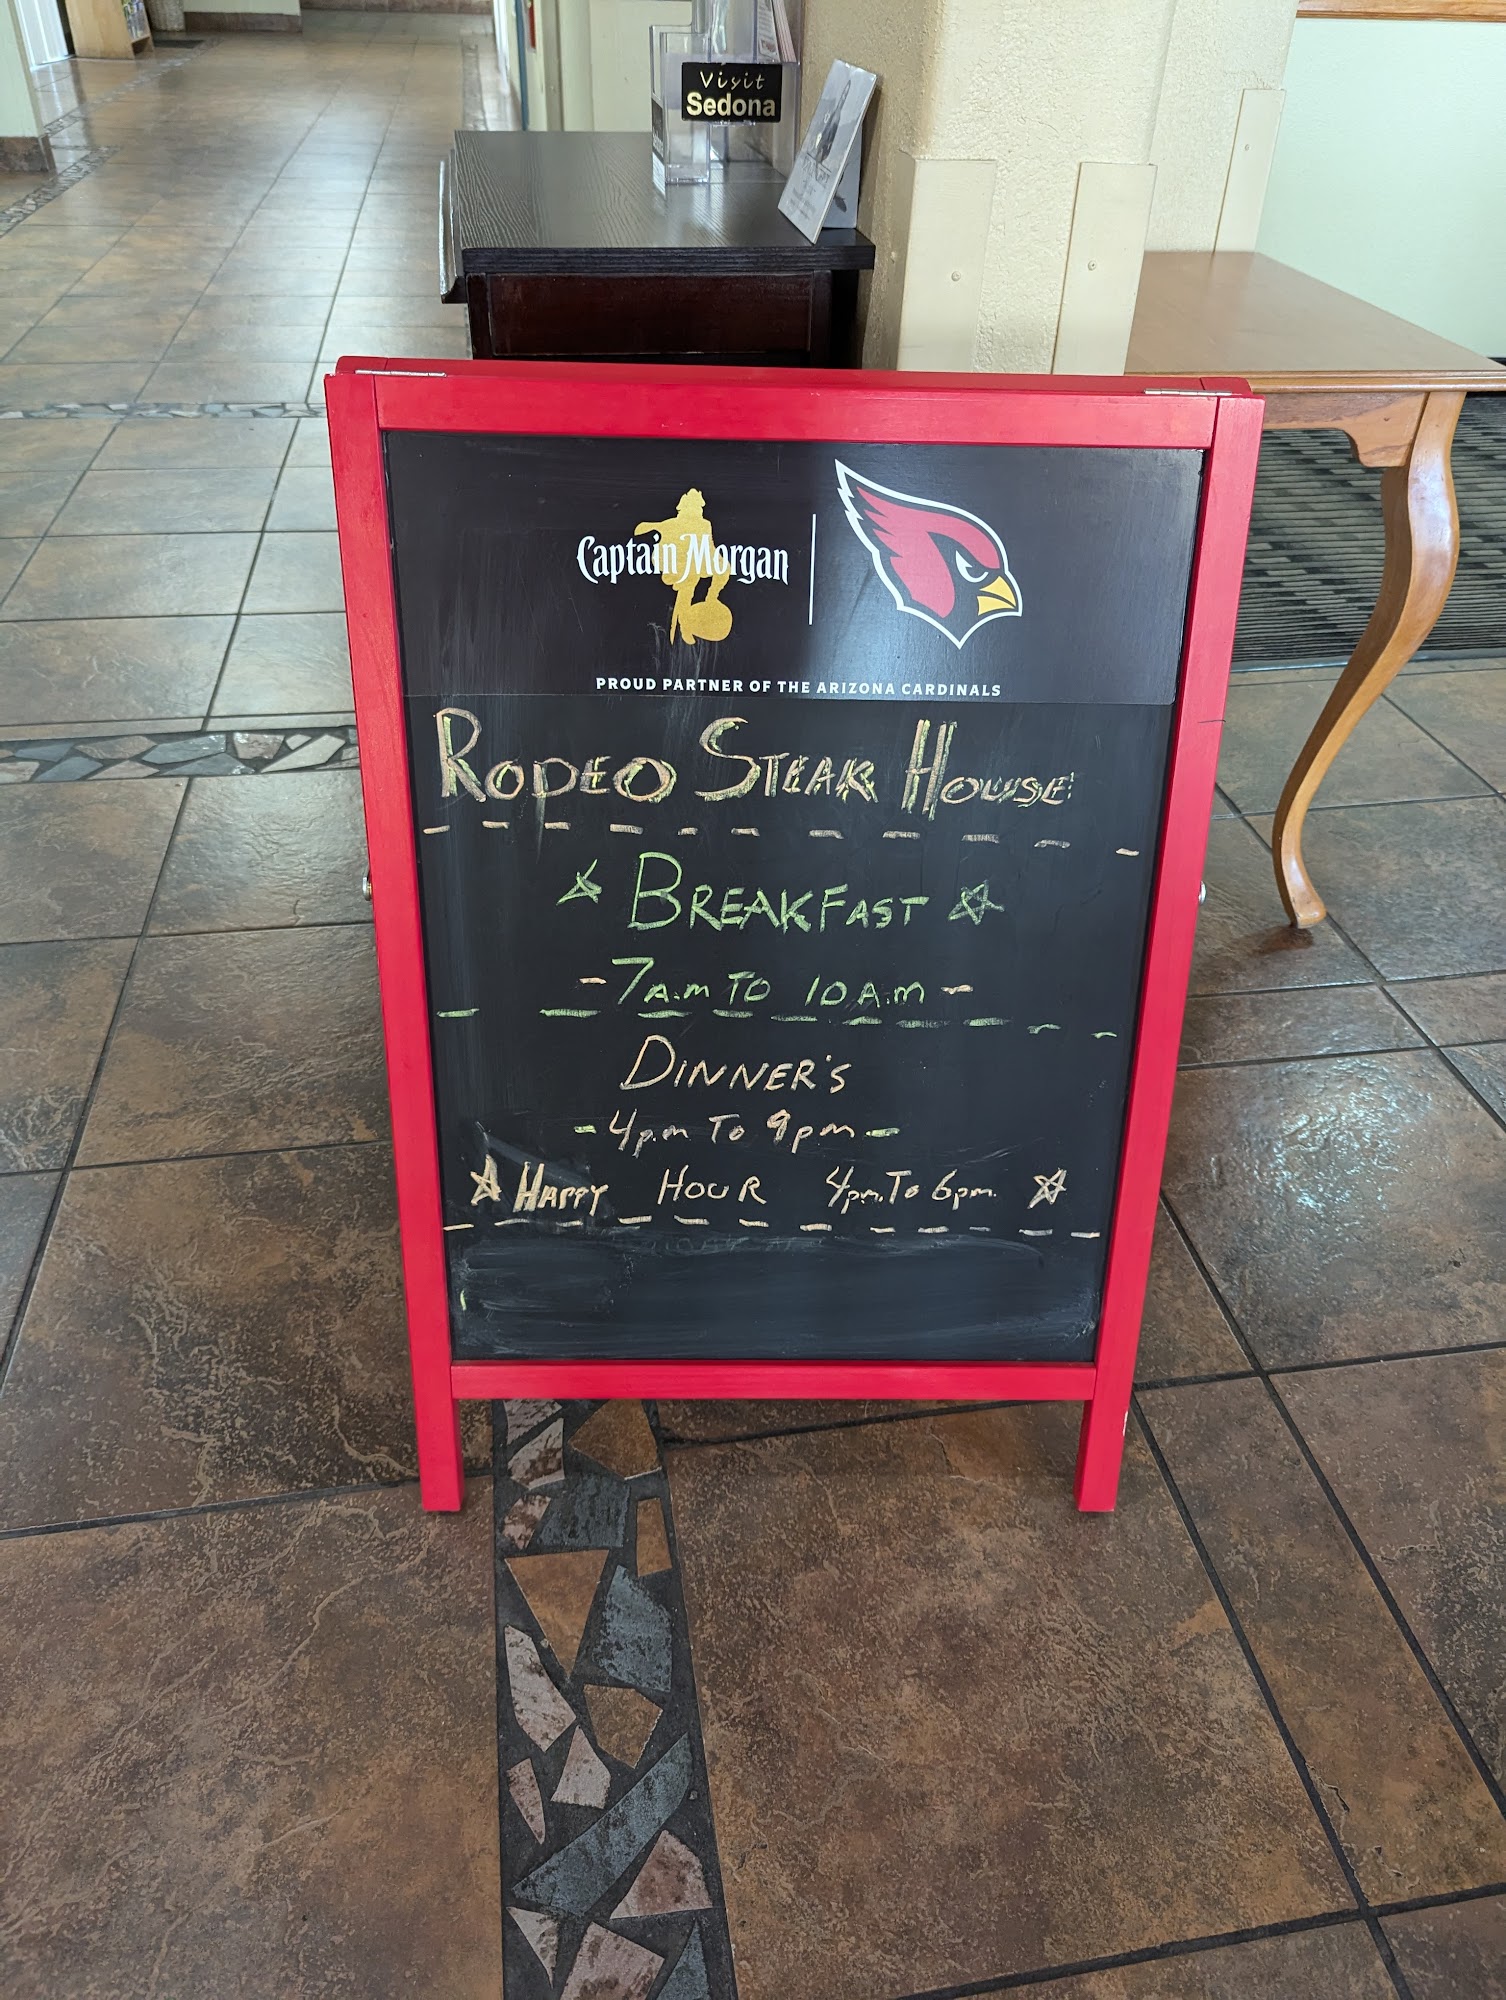 Visit
Sedona
Captain Morgan
PROUD PARTNER OF THE ARIZONA CARDINALS
RODEO STEAK HOUSE
BREAKFAST
- 7 A.M TO 10 A.M -
DINNER'S
- 4 p.m TO 9 pm -
HAPPY HOUR 4 pm. TO 6 pm.